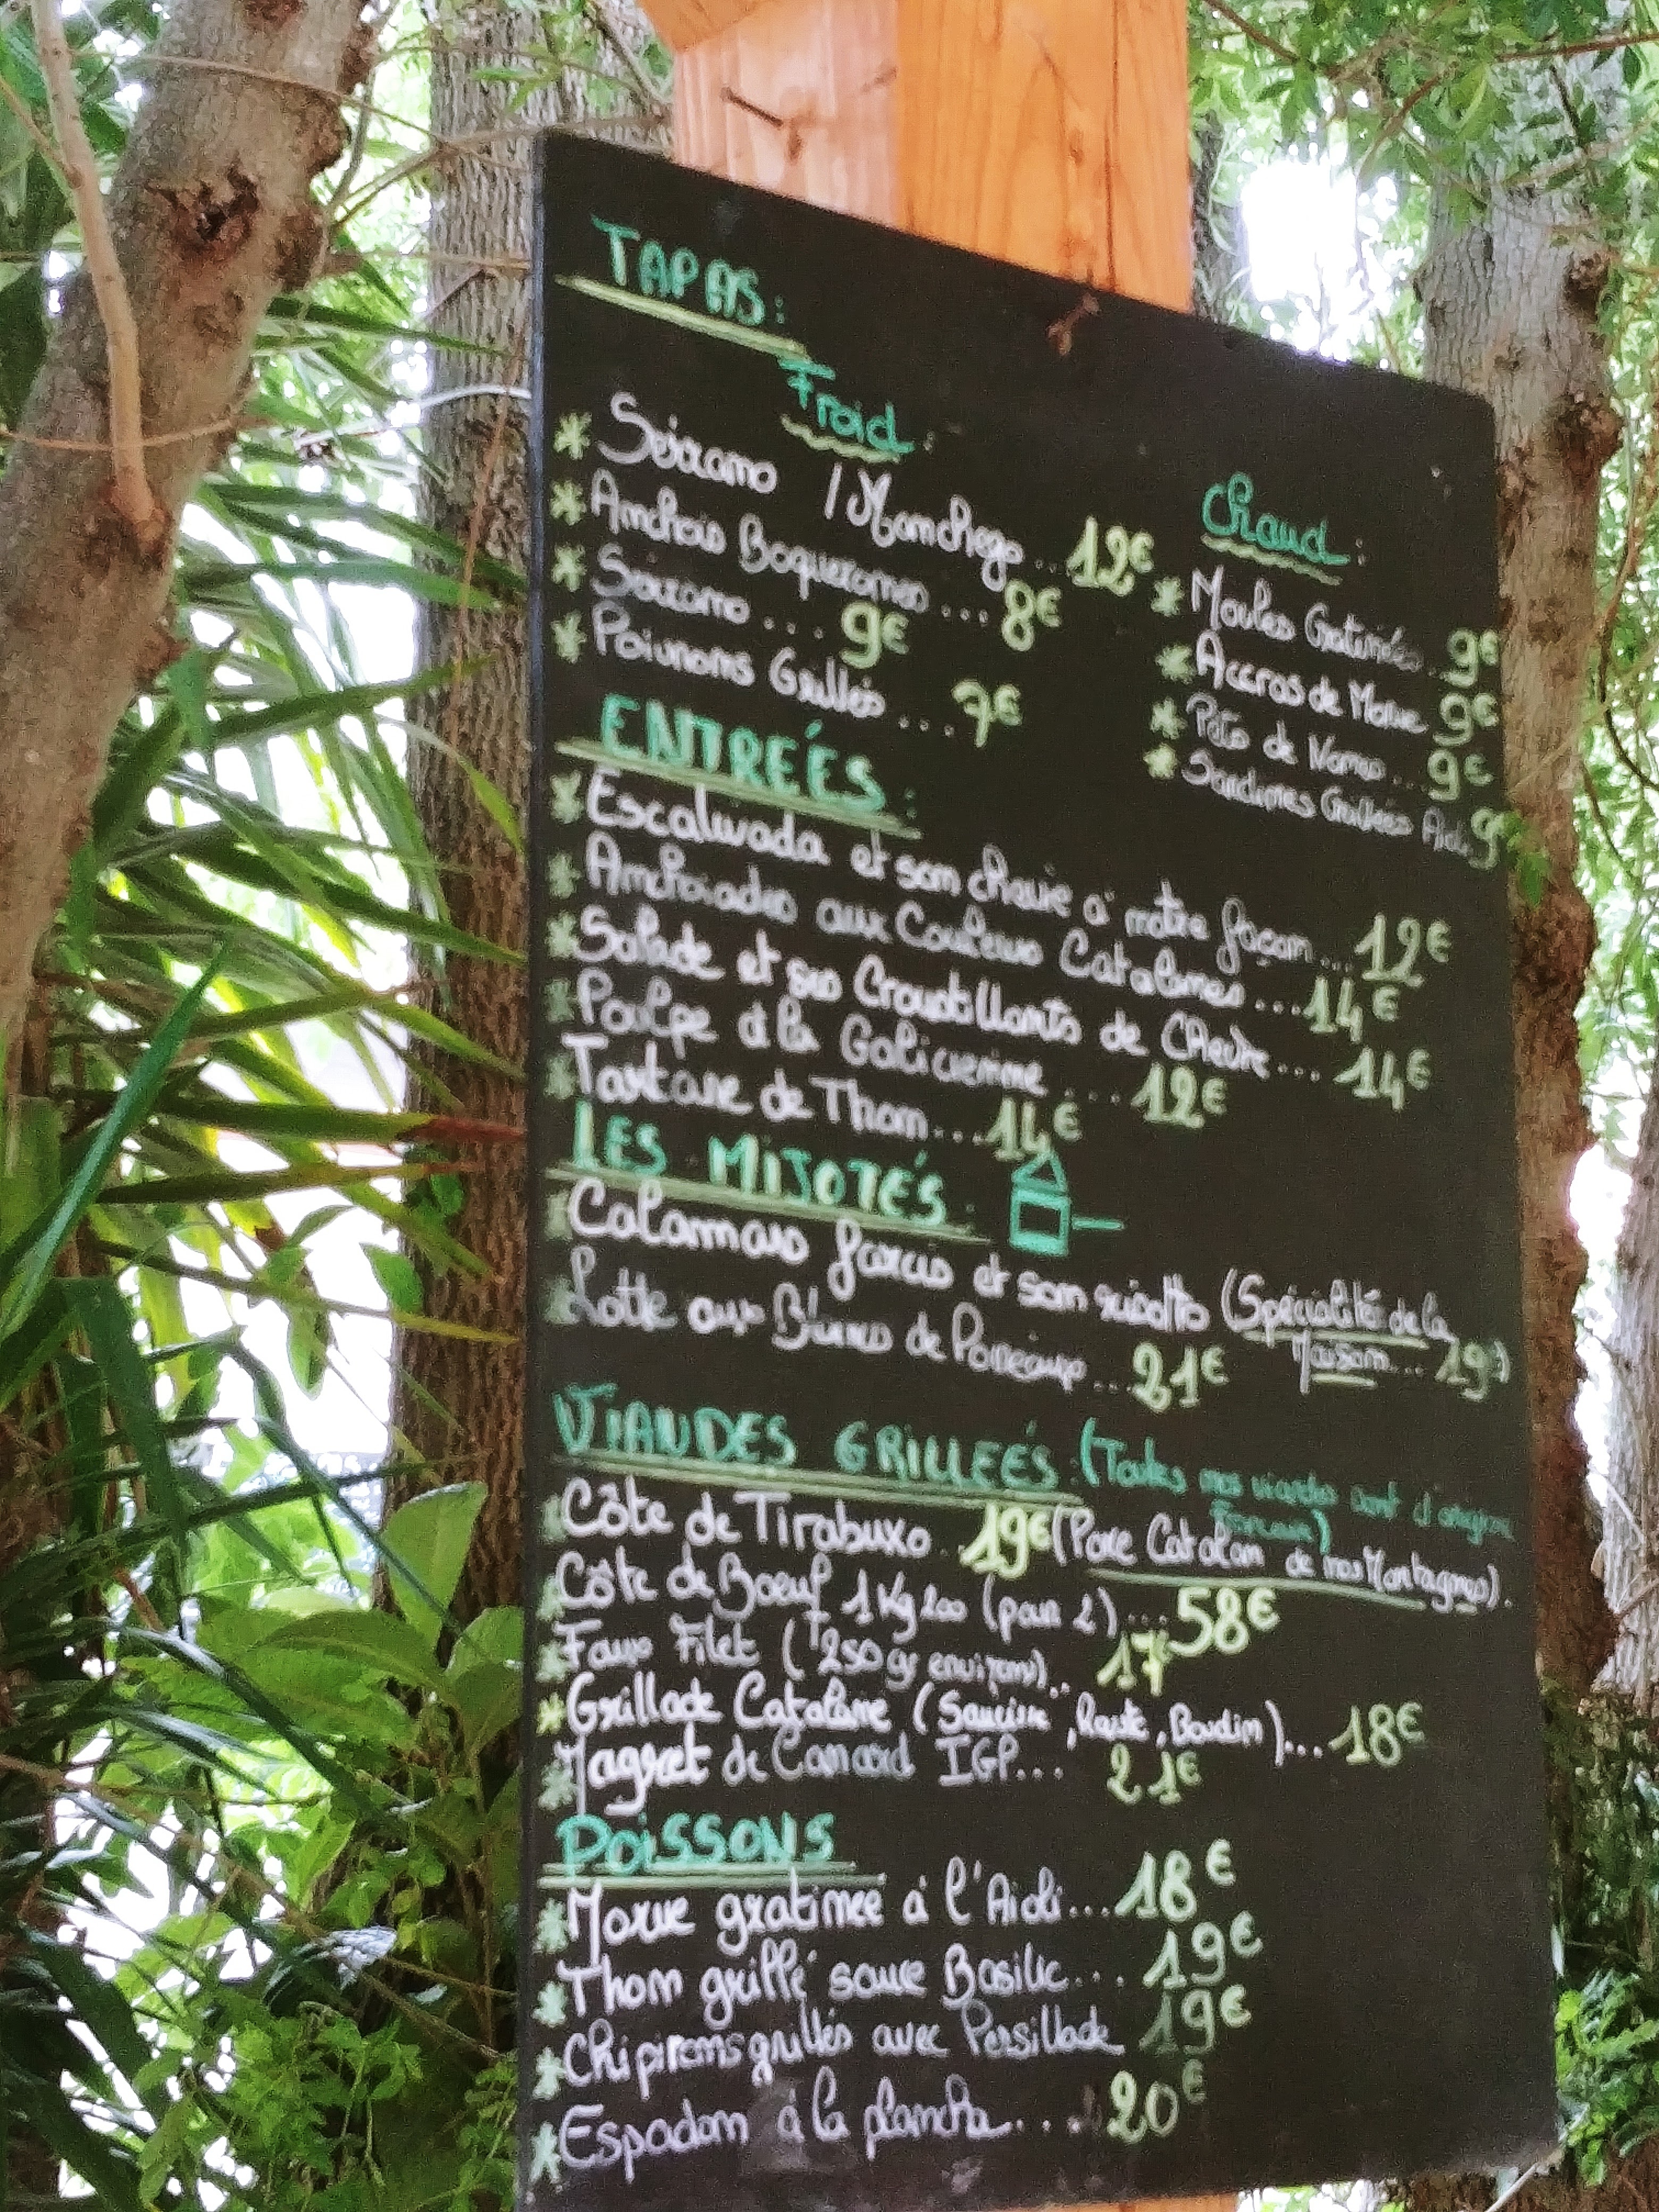 TAPAS:
Froid:
* Serrano / Manchego... 12€
* Anchois Boquerones... 8€
* Serrano... 9€
* Poivrons Grillés... 7€
Chaud:
* Moules Gratinées.. 9€
* Accras de Morue 9€
* 9€
* Sardines Grillées Aioli 9€
ENTREÉS:
* Escalivada et son chèvre à notre façon... 12€
* Anchoiades aux Couleurs Catalanes... 14€
* Salade et ses Croustillants de Chèvre... 14€
* Poulpe à la Galicienne... 12€
* Tartare de Thon... 14€
LES MIJOTÉS:
* Calamars farcis et son risotto (Spécialité de la
Maison... 19€)
* Lotte aux Blancs de Poireaux... 21€
VIANDES GRILLEÉS: (Toutes nos viandes sont d'origine
)
* Côte de Tirabuxo.. 19€ (Porc Catalan de nos Montagnes).
* Côte de Boeuf 1Kg200 (pour 2)... 58€
* Faux Filet (250gr environ)... 17€
* Grillade Catalane (Saucisse, , Boudin)... 18€
* Magret de Canard IGP... 21€
POISSONS
* Morue gratinée à l'Aioli... 18€
* Thon grillé sauce Basilic... 19€
* Chipirons grillés avec Persillade 19€
* Espadon à la plancha... 20€